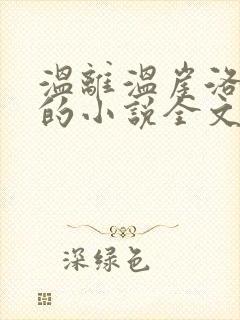 温離温崖洛
的小説全文
深绿色